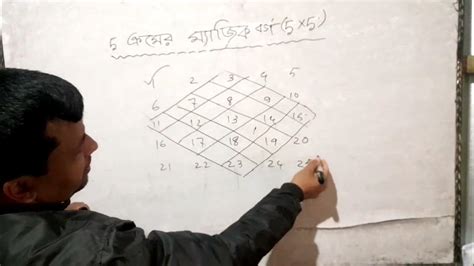 ৫ ক্রমের ম্যাজিক বর্গ (5 × 5)
1 2 3 4 5
6 7 8 9 10
11 12 13 14 15
16 17 18 19 20
21 22 23 24